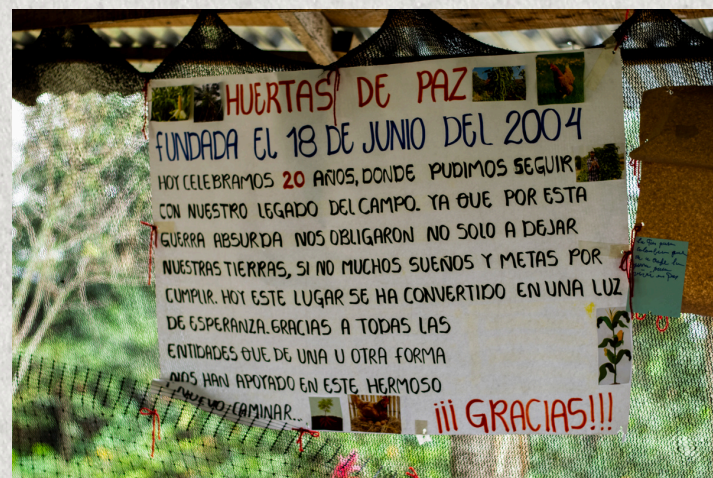 HUERTAS DE PAZ
FUNDADA EL 18 DE JUNIO DEL 2004
HOY CELEBRAMOS 20 AÑOS, DONDE PUDIMOS SEGUIR
CON NUESTRO LEGADO DEL CAMPO. YA QUE POR ESTA
GUERRA ABSURDA NOS OBLIGARON NO SOLO A DEJAR
NUESTRAS TIERRAS, SI NO MUCHOS SUEÑOS Y METAS POR
CUMPLIR. HOY ESTE LUGAR SE HA CONVERTIDO EN UNA LUZ
DE ESPERANZA. GRACIAS A TODAS LAS
ENTIDADES QUE DE UNA U OTRA FORMA
NOS HAN APOYADO EN ESTE HERMOSO
NUEVO CAMINAR...
¡¡¡ GRACIAS!!!